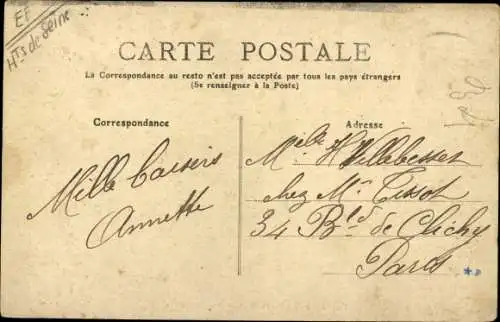 EF
Hts de Seine
CARTE POSTALE
La Correspondance au resto n'est pas acceptée par tous les pays étrangers
(Se renseigner à la Poste)
Correspondance
Mille baisers
Annette
Adresse
Melle H Villebesset
chez Mr Tissot
34 Bld de Clichy
Paris